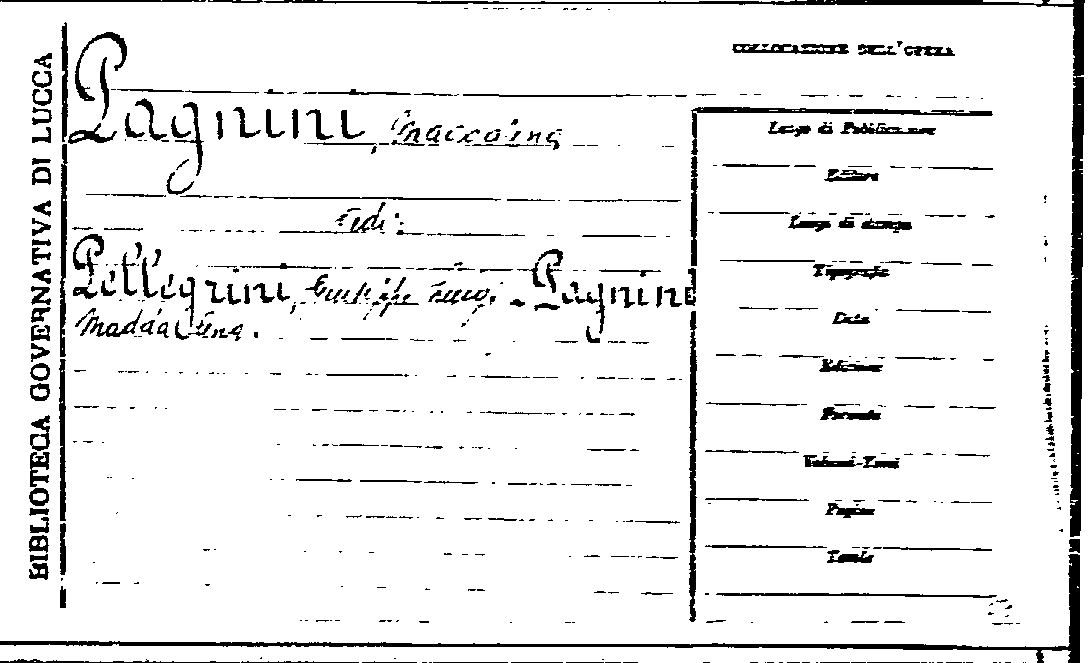 BIBLIOTECA GOVERNATIVA DI LUCCA
COLLOCAZIONE DELL'OPERA
Pagnini,
Vedi:
Pellegrini, Giuseppe Luigi - Pagnini
Maddalena.
Luogo di Pubblicazione
Editore
Luogo di stampa
Tipografia
Data
Edizione
Formato
Volumi-Tomi
Pagine
Tavole